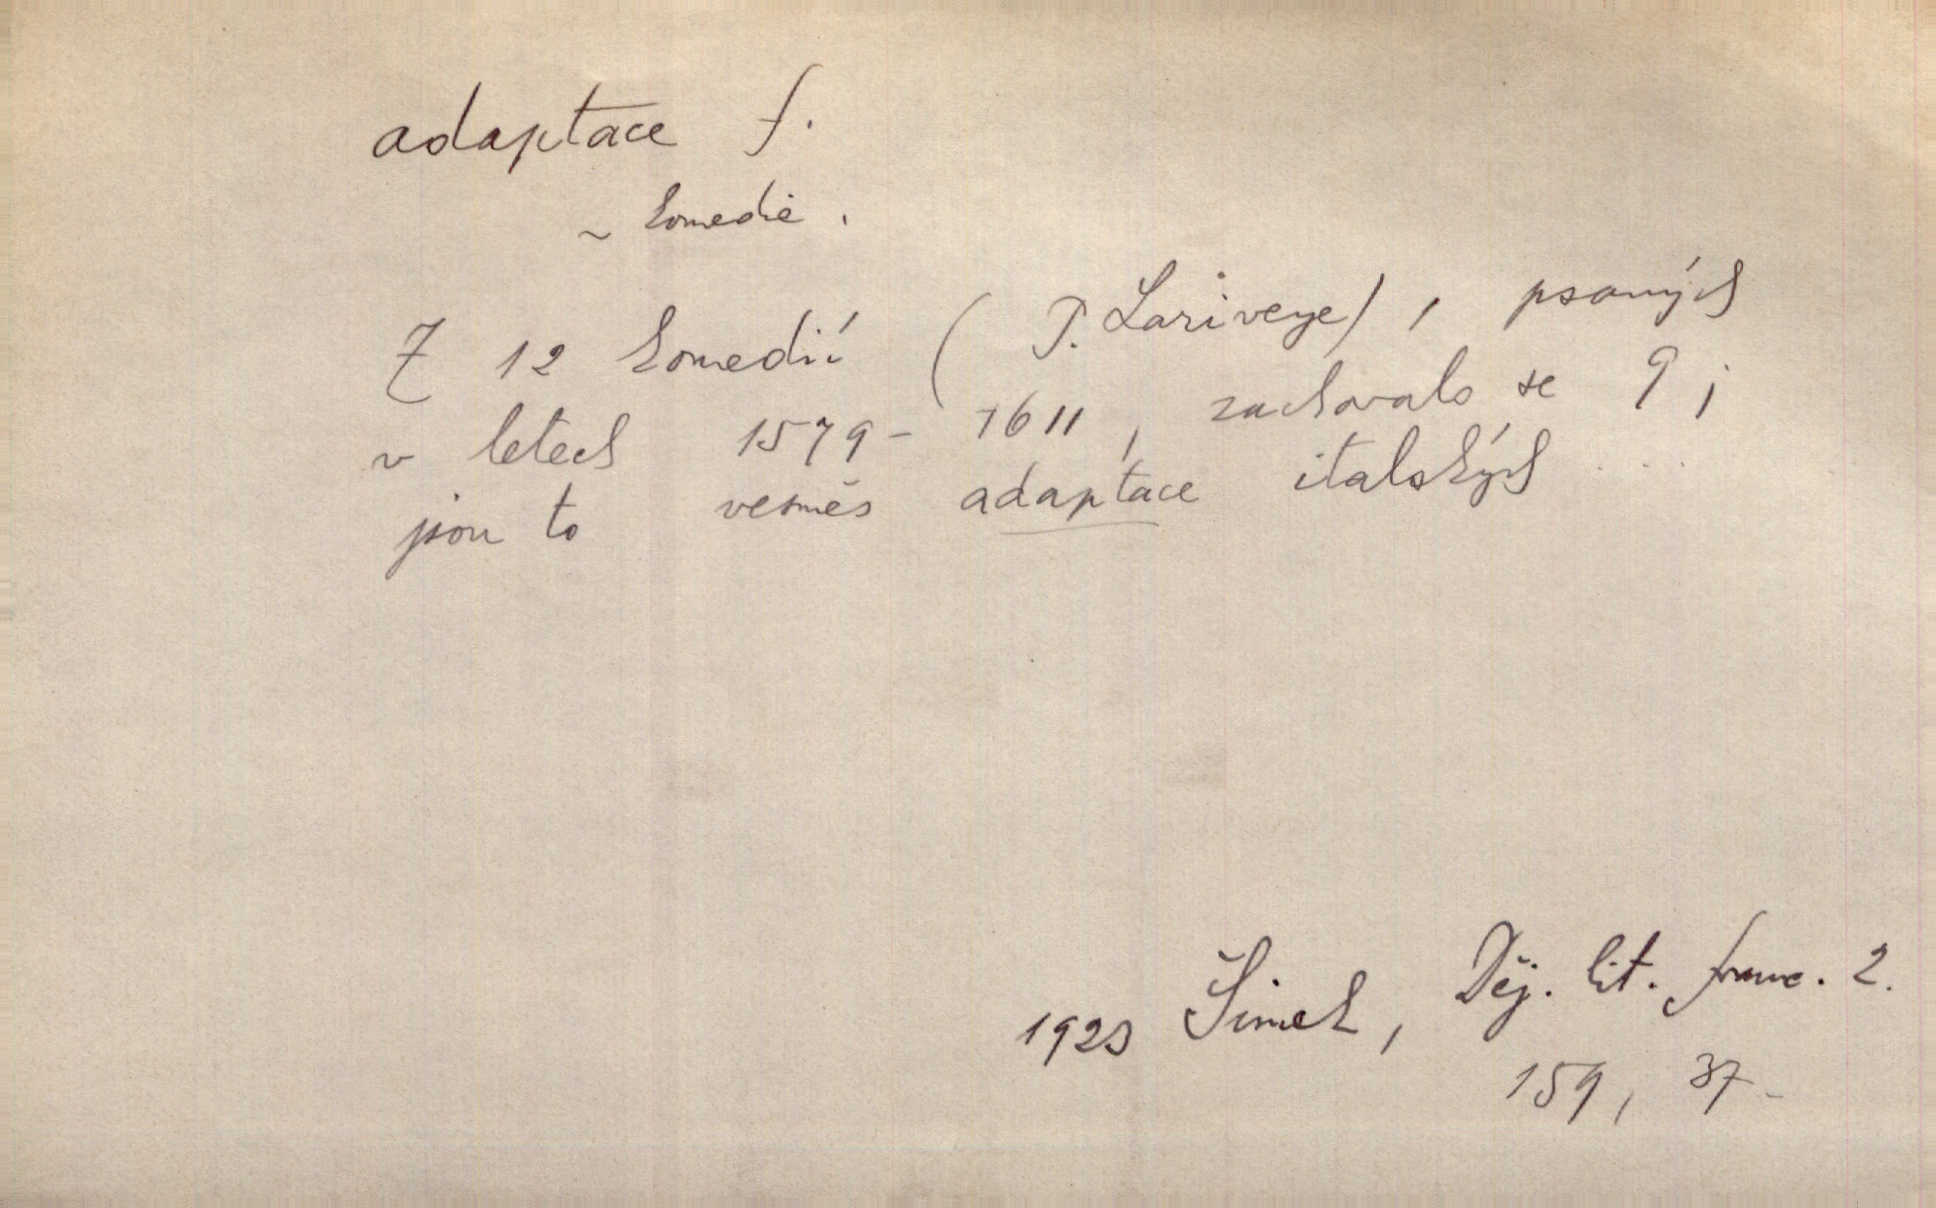 adaptace f.
~ komedie.
Z 12 komedií (P. Larivege), psaných
v letech 1579-1611, zachovalo se 9;
jsou to vesměs adaptace italských ...
1923 Šimek, Děj. lit. franc. 2.
159, 37-